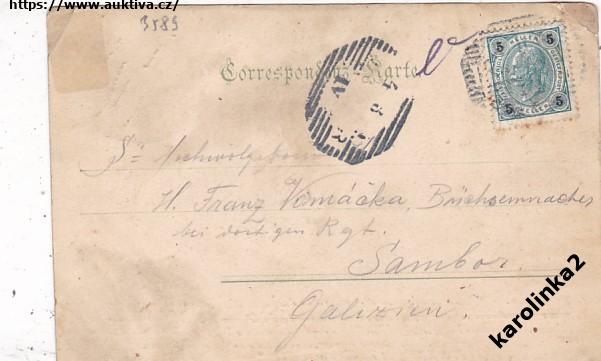 https://www.auktiva.cz/
3589
Correspondenz-Karte
5 HELLER 5
5 HELLER 5
Sr Hochwolgeboren
H. Franz Vomáčka, Büchsenmacher
bei dortigen Rgt.
Sambor.
Galizien.
karolinka2